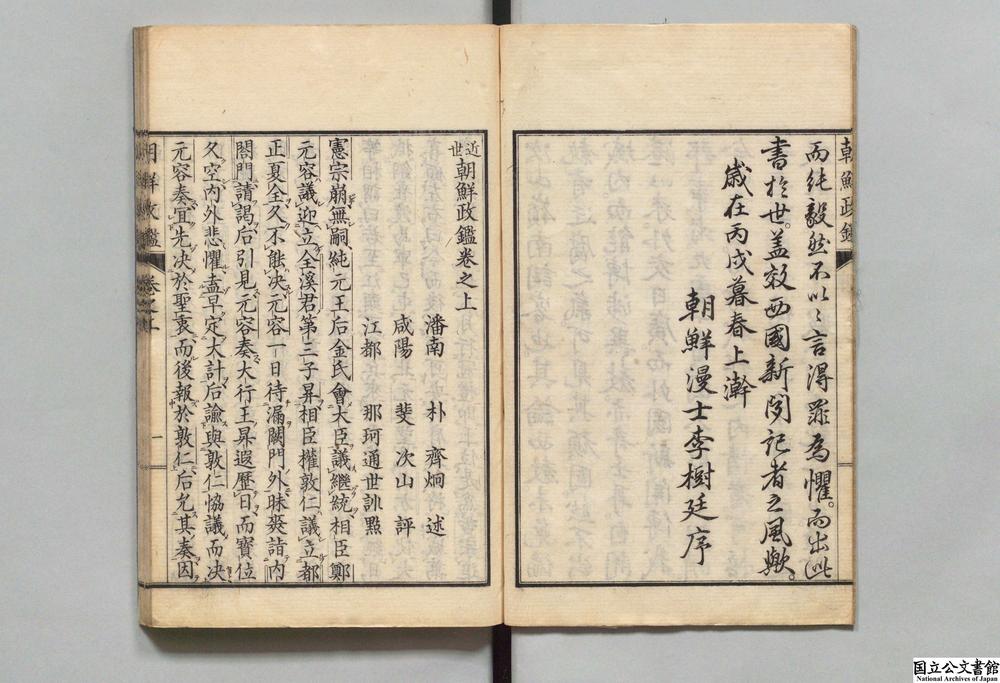 朝鮮政鑑
而純毅然不以以言得罪為懼。而出此
書於世。蓋效西國新聞記者之風歟。
歲在丙戌暮春上澣
朝鮮漫士李樹廷序
近世朝鮮政鑑卷之上
潘南 朴齊炯 述
咸陽 斐次山 評
江都 那珂通世 訓點
憲宗崩無嗣純元王后金氏會大臣議繼統相臣鄭
元容議迎立全溪君第三子昇相臣權敦仁議立都
正夏全久不能決元容一日待漏闕門外昧爽詣內
閤門請謁后引見元容奏大行王昇遐歷日而寶位
久空內外悲懼盍早定大計后諭與敦仁恊議而決
元容奏宜先決於聖衷而後報於敦仁后允其奏因
朝鮮政鑑 卷之上 一
国立公文書館
National Archives of Japan